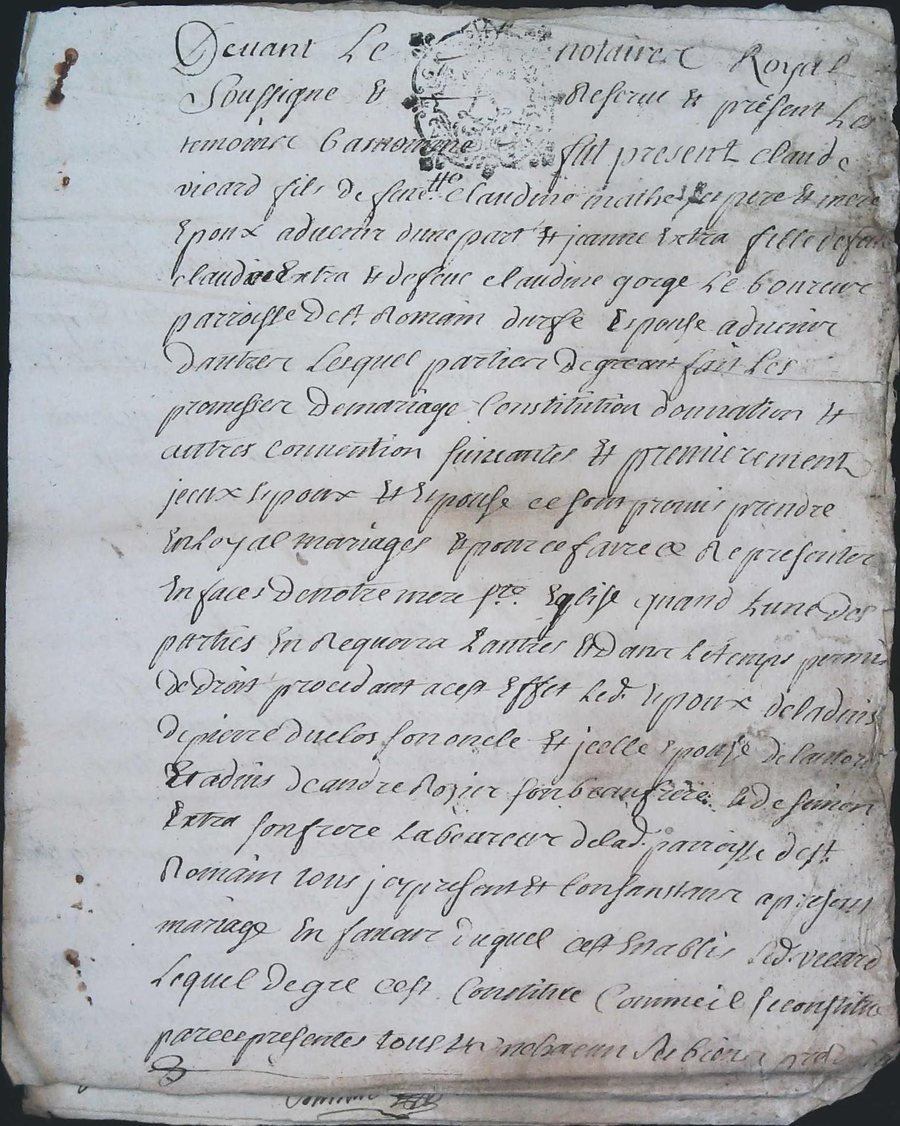 Devant Le notaire Royal
Soussigne Et Reserve Et present Les
temoins bas nomme fut present claude
vieard fils de feu claudine mathe ses pere Et mere
Epoux advenir dune part Et jeanne Extra fille de feu
claude Extra Et de feue claudine gorge Laboureur
parroisse de st. Romain durfe Espouse advenir
Dautre Lesquel parties De gre ont fait Les
promesses De mariage Constitution donnation Et
autres Convention suivantes Et premierement
jceux Epoux Et Epouse ce sont promis prendre
En Loyal mariages Et pour ce faire ce Representer
En faces De notre mere ste. Eglise quand Lune Des
parties En Requerra Lautres Et Dans Le temps permis
De Droit procedant a cest Effet Led. Epoux de ladvis
De pierre Duclos son oncle Et jcelle Epouse de Lautor
Et advis De andre Rozier son beaufrere Et De simon
Extra son frere Laboureur de lad. parroisse de st.
Romain tous jcy present Et Consentant a present
mariage En faveur Duquel cest Establis Led. vieard
Lequel De gre cest Constitue Comme il se constitue
par ces presentes tous Et un chacun ses biens